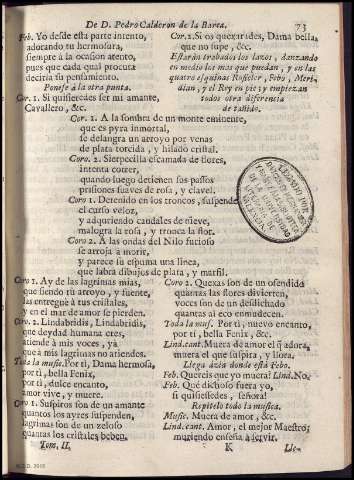 De D. Pedro Calderon de la Barca. 73
Feb. Yo desde esta parte intento,
adorando tu hermosura,
siempre à la ocasion atento,
pues que cada qual procura
deciria su pensamiento.
Ponese à la otra punta.
Cor. 1. Si quisieredes ser mi amante,
Cavallero, &c.
Cor. 2. Si os quexarides, Dama bella,
que no supe, &c.
Estaràn trabados los lazos, danzando
en medio los mas que puedan, y en las
quatro esquinas Rosicler, Febo, Meri-
dian, y el Rey en pie; y empiezan
todos otra diferencia
de tañido.
Cor. 1. A la sombra de un monte eminente,
que es pyra inmortal,
se desangra un arroyo por venas
de plata torcida, y hilado cristal.
Coro 2. Sierpecilla escamada de flores,
intenta correr,
quando luego detienen sus passos
prisiones suaves de rosa, y clavel.
Coro 1. Detenido en los troncos, suspende
el curso veloz,
y adquiriendo caudales de nieve,
malogra la rosa, y tronca la flor.
Coro 2. A las ondas del Nilo furioso
se arroja à morir,
y parece su espuma una linea,
que labra dibujos de plata, y marfil.
Coro 1. Ay de las lagrimas mias,
que siendo tu arroyo, y fuente,
las entreguè à tus cristales,
y en el mar de amor se pierden.
Coro. 2. Lindabridis, Lindabridis,
que deydad humana eres,
atiende à mis voces, yà
que à mis lagrimas no atiendes.
Toda la music. Por ti, Dama hermosa,
por ti, bella Fenix,
por ti, dulce encanto,
amor vive, y muere.
Coro 1. Suspiros son de un amante
quantos los ayres suspenden,
lagrimas son de un zeloso
quantas los cristales beben.
Tom. II.
Coro 2. Quexas son de un ofendido
quantas las flores divierten,
voces son de un desdichado
quantas al eco enmudecen.
Toda la mus. Por ti, nuevo encanto,
por ti, bella Fenix, &c.
Lind. cant. Muera de amor el q̃ adora,
muera el que suspira, y llora.
Llega àzia donde està Febo.
Feb. Quereis que yo muera? Lind. No.
Feb. Què dichoso fuera yo,
si quisiessedes, señora!
Repitelo toda la musica.
Music. Muera de amor, &c.
Lind. cant. Amor, el mejor Maestro,
muriendo enseña à servir.
K Lle-